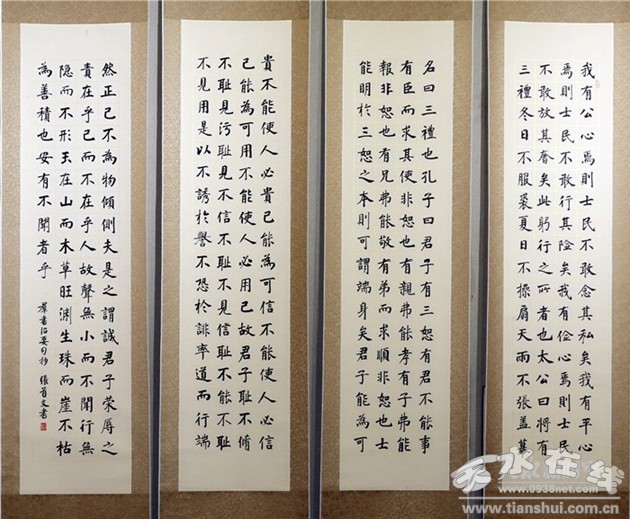 我有公心焉則士民不敢念其私矣我有平心
焉則士民不敢行其险矣我有俭心焉則士民
不敢放其奢矣此躬行之所者也太公曰將有
三禮冬日不服裘夏日不操扇天雨不张盖幕
名曰三禮也孔子曰君子有三恕有君不能事
有臣而求其使非恕也有親弗能孝有子弗能
報非恕也有兄弗能敬有弟而求順非恕也士
能明於三恕之本則可謂端身矣君子能為可
貴不能使人必貴己能為可信不能使人必信
己能為可用不能使人必用己故君子耻不脩
不耻見污耻見不信不耻不見信耻不能不耻
不見用是以不誘於譽不恐於誹率道而行端
然正己不為物傾側夫是之謂誠君子荣辱之
貴在乎己而不在乎人故聲無小而不聞行無
隐而不形玉在山而木草旺渊生珠而崖不枯
為善積也安有不聞者乎
羣書治要句抄 張首文書
天水在线
www.0938net.com
www.tianshui.com.cn